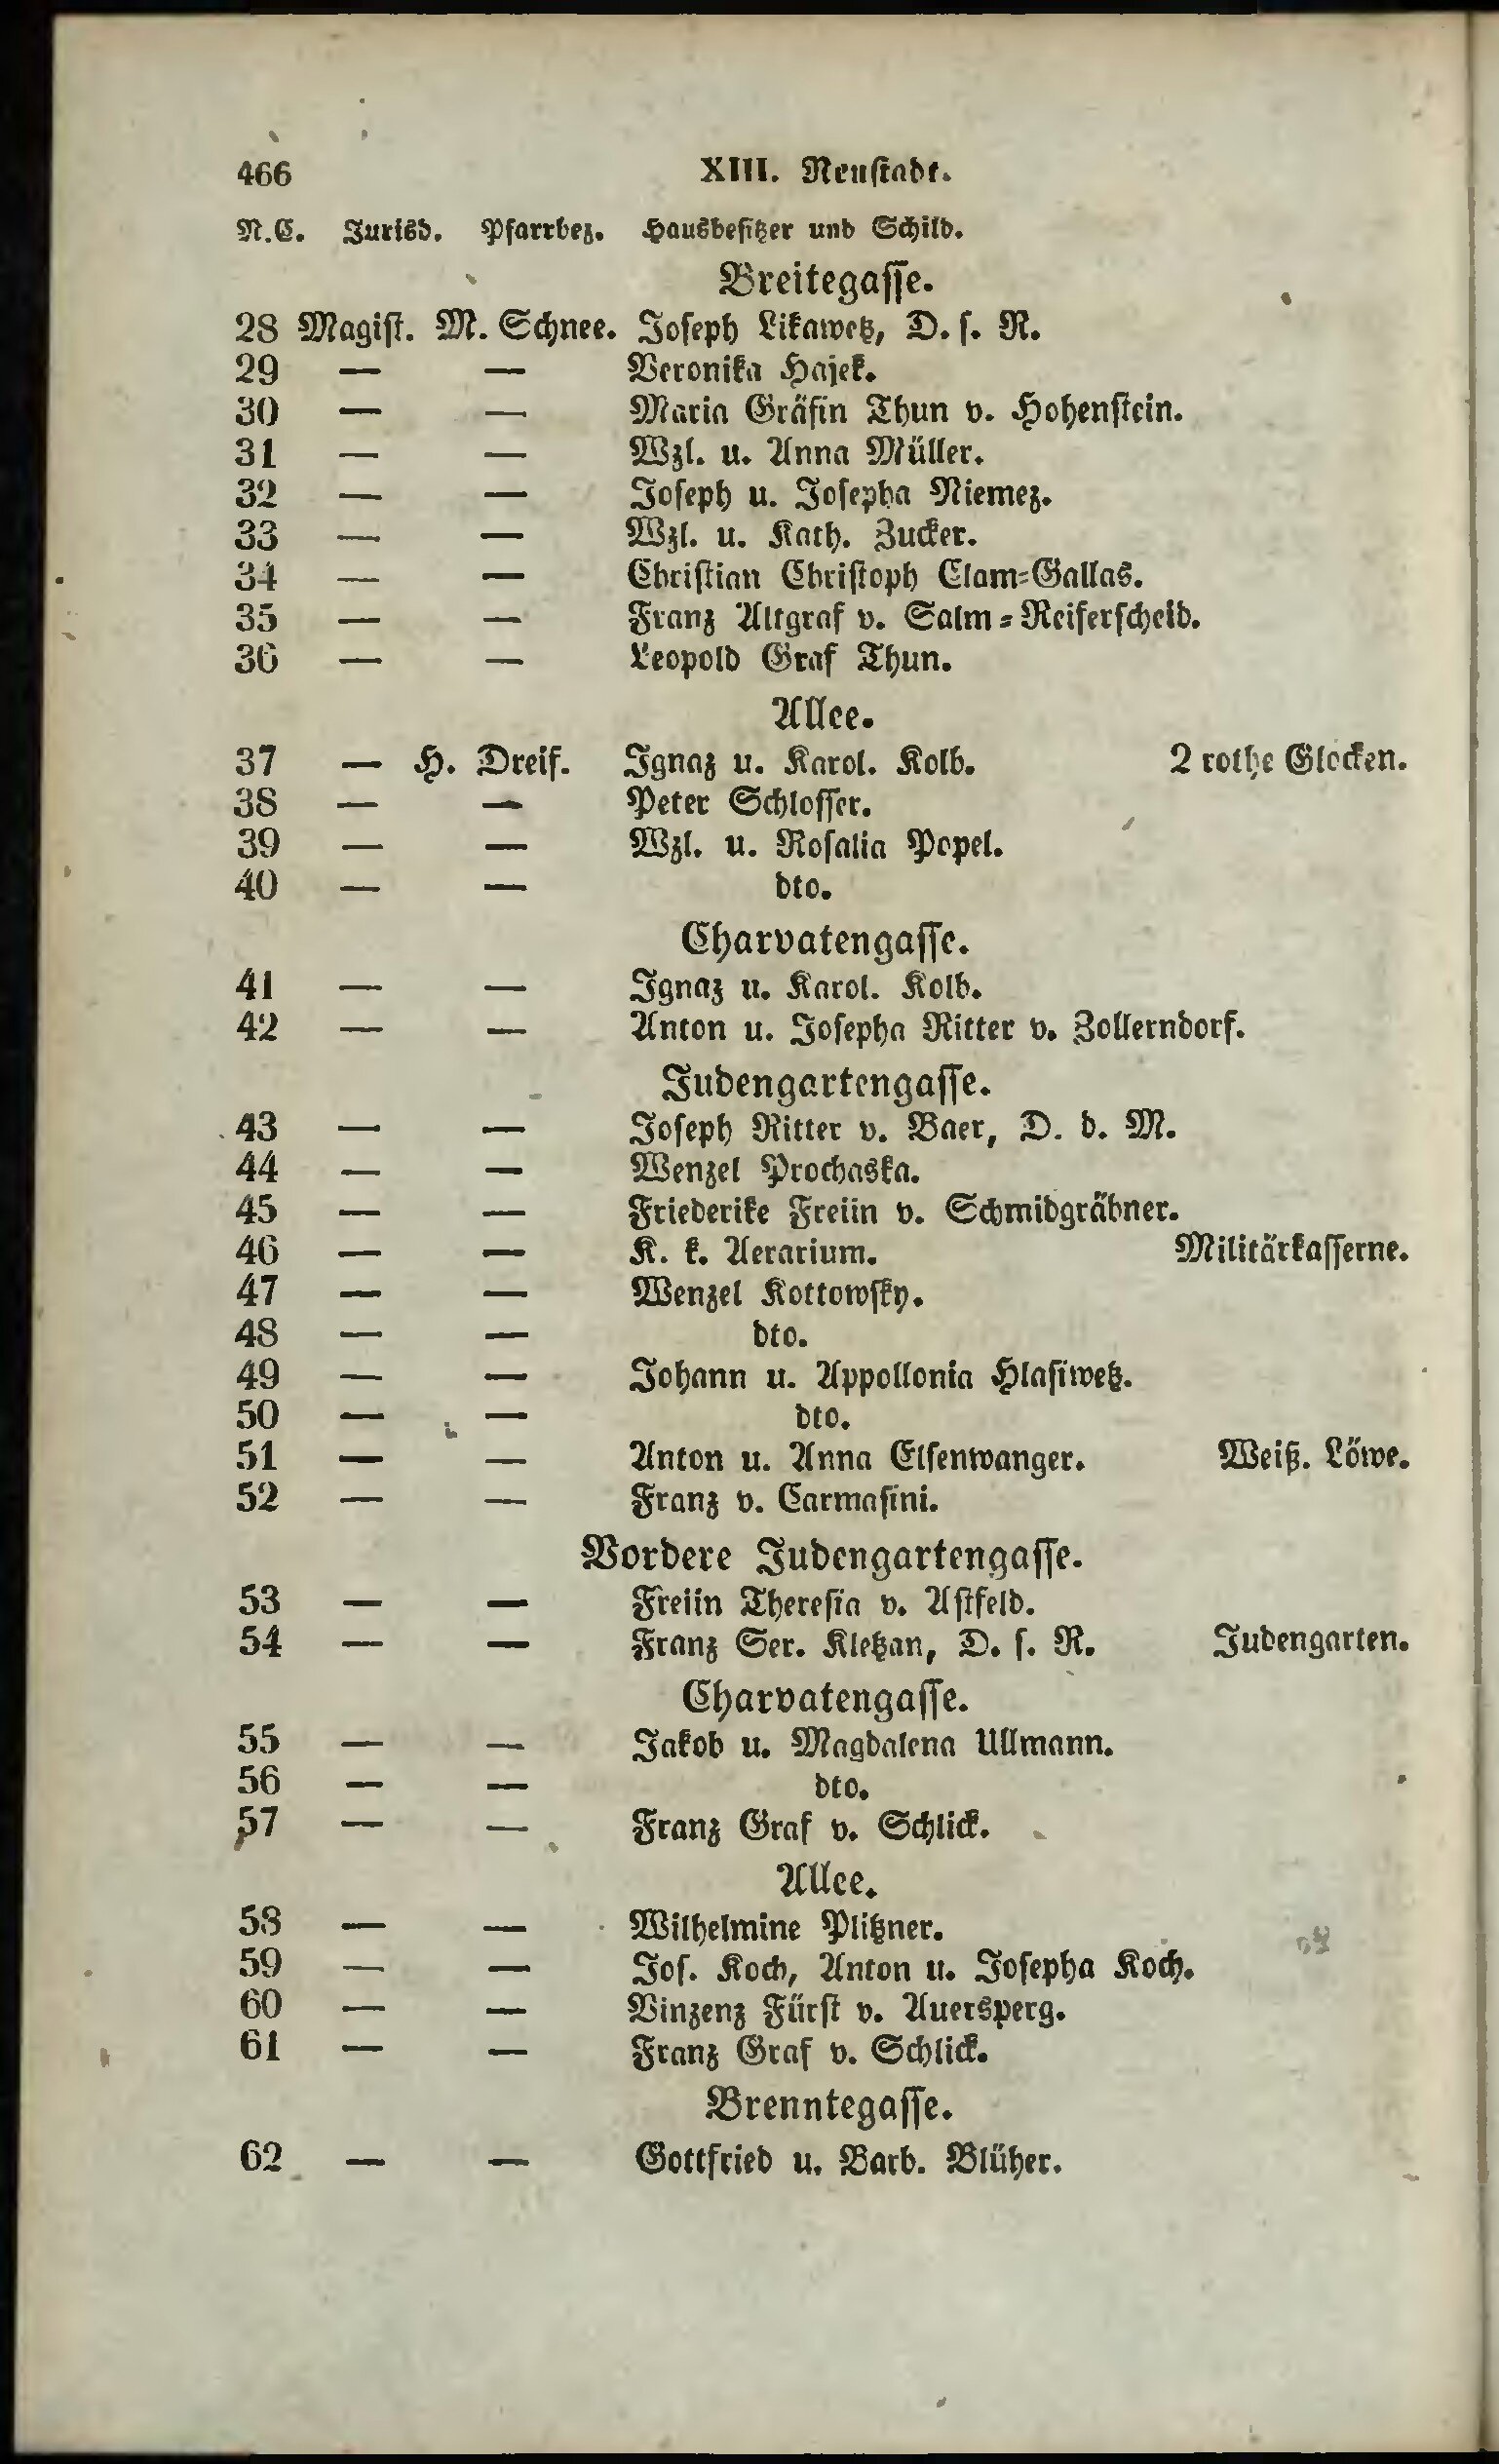 466 XIII. Neustadt.
N.C. Jurisd. Pfarrbez. Hausbesitzer und Schild.
Breitegasse.
28 Magist. M. Schnee. Joseph Likawetz, D. s. R.
29 — — Veronika Hajek.
30 — — Maria Gräfin Thun v. Hohenstein.
31 — — Wzl. u. Anna Müller.
32 — — Joseph u. Josepha Niemez.
33 — — Wzl. u. Kath. Zucker.
34 — — Christian Christoph Clam=Gallas.
35 — — Franz Altgraf v. Salm=Reiferscheid.
36 — — Leopold Graf Thun.
Allee.
37 — H. Dreif. Ignaz u. Karol. Kolb. 2 rothe Glocken.
38 — — Peter Schlosser.
39 — — Wzl. u. Rosalia Popel.
40 — — dto.
Charvatengasse.
41 — — Ignaz u. Karol. Kolb.
42 — — Anton u. Josepha Ritter v. Zollerndorf.
Judengartengasse.
43 — — Joseph Ritter v. Baer, D. d. M.
44 — — Wenzel Prochaska.
45 — — Friederike Freiin v. Schmidgräbner.
46 — — K. k. Aerarium. Militärkasserne.
47 — — Wenzel Kottowsky.
48 — — dto.
49 — — Johann u. Appollonia Hlasiwetz.
50 — — dto.
51 — — Anton u. Anna Elsenwanger. Weiß. Löwe.
52 — — Franz v. Carmasini.
Vordere Judengartengasse.
53 — — Freiin Theresia v. Astfeld.
54 — — Franz Ser. Kletzan, D. s. R. Judengarten.
Charvatengasse.
55 — — Jakob u. Magdalena Ullmann.
56 — — dto.
57 — — Franz Graf v. Schlick.
Allee.
58 — — Wilhelmine Plitzner.
59 — — Jos. Koch, Anton u. Josepha Koch.
60 — — Vinzenz Fürst v. Auersperg.
61 — — Franz Graf v. Schlick.
Brenntegasse.
62 — — Gottfried u. Barb. Blüher.